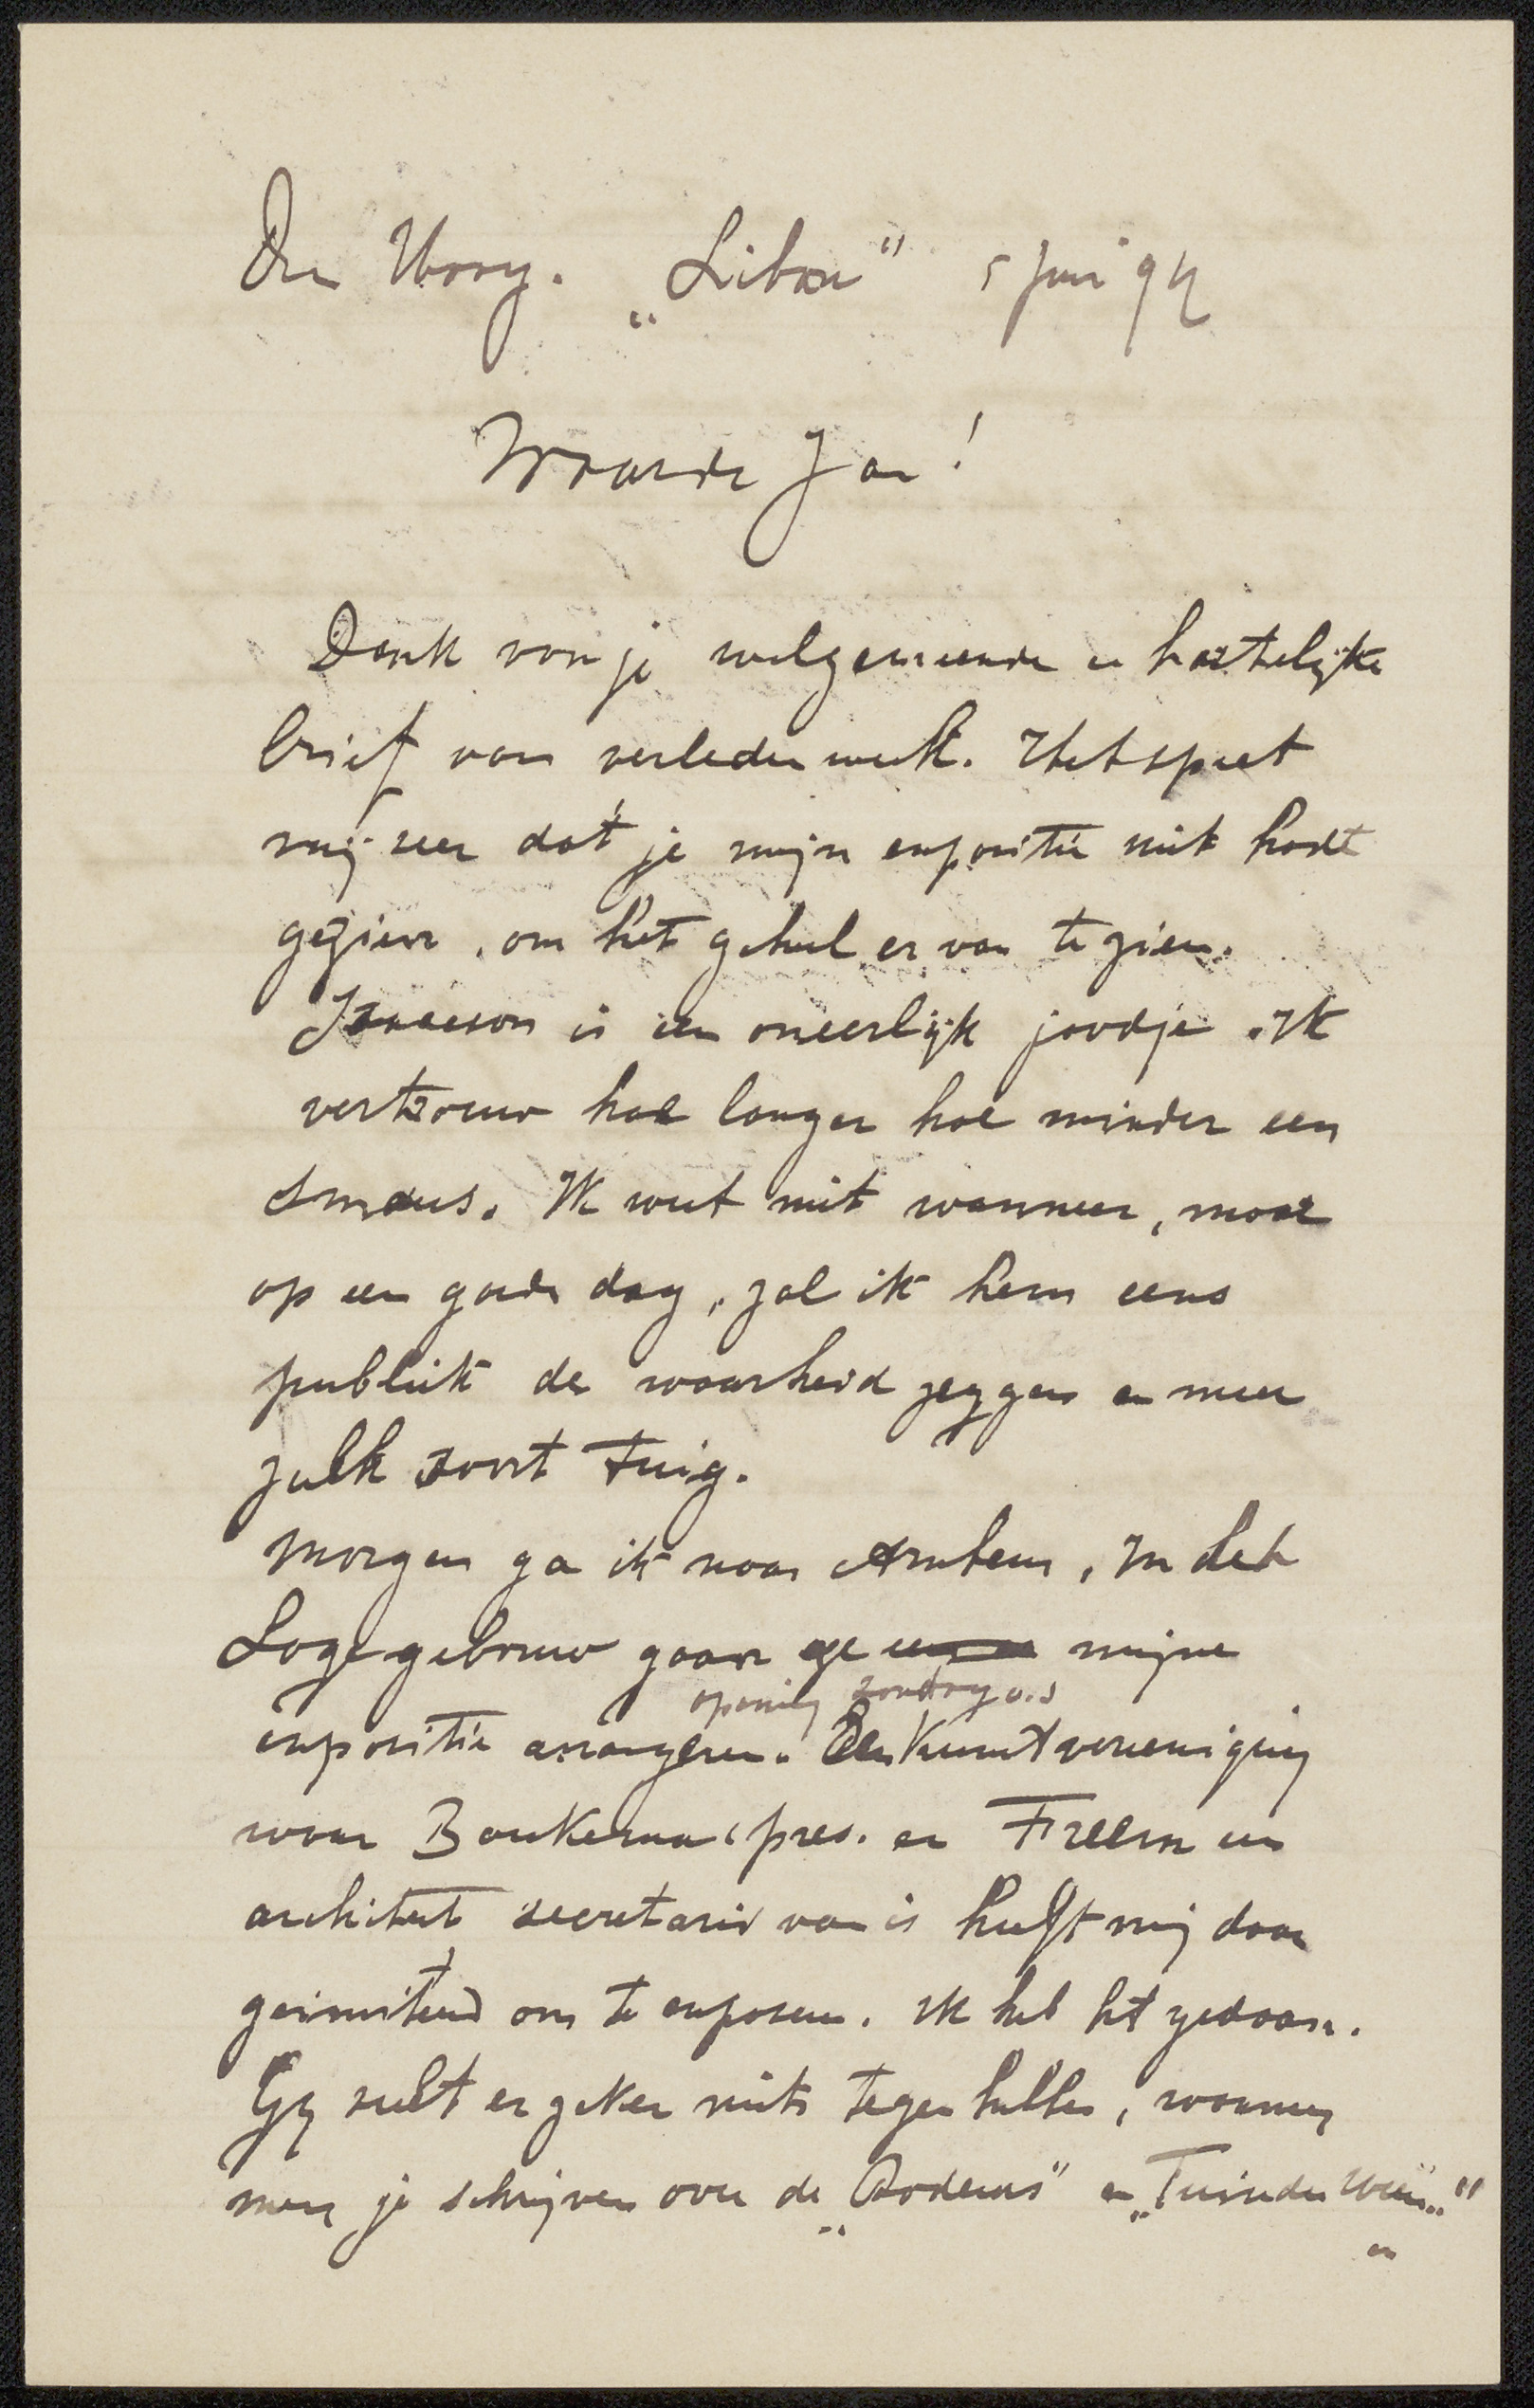 Den Haag. „Liban" 5 Juni 94
Waarde Jan!
Dank voor je welgemeende en hartelijke
brief van verleden week. Het speet
mij zeer dat je mijn expositie niet hadt
gezien, om het geheel er van te zien.
Isaacson is een oneerlijk joodje. Ik
vertrouw hoe langer hoe minder een
smaus. Ik weet niet wanneer, maar
op een goede dag, zal ik hem eens
publiek de waarheid zeggen en meer
zulk soort tuig.
Morgen ga ik naar Arnhem, in het
Loge gebouw gaan we mijne
opening zondag a.s
expositie arrangeren. Een Kunstvereeniging
waar Baukema pres. en Freem een
architect secretaris van is heeft mij daar
geinviteerd om te exposeren. Ik heb het gedaan.
Gy zult er zeker niets tegen hebben, wanneer
men je schrijven over de „Rodeurs" en „Tuin der Weeën"
en